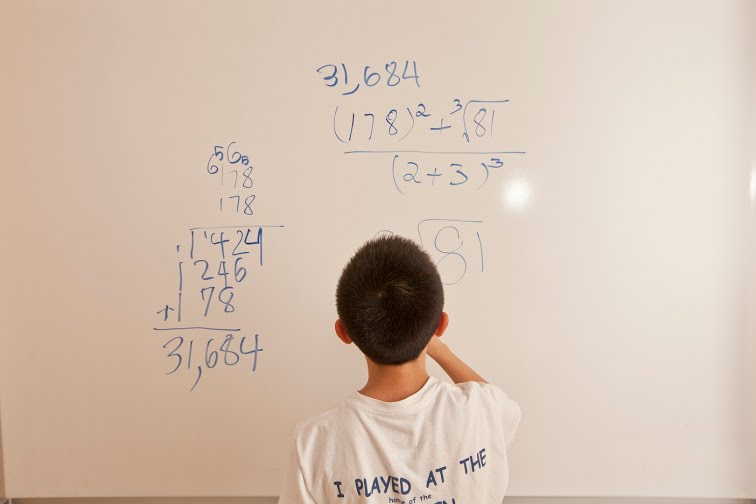 31,684
(178)² + ³√81
(2+3)³
√81
56
65
178
178
1424
1246
+178
31,684
I PLAYED AT THE
home of the